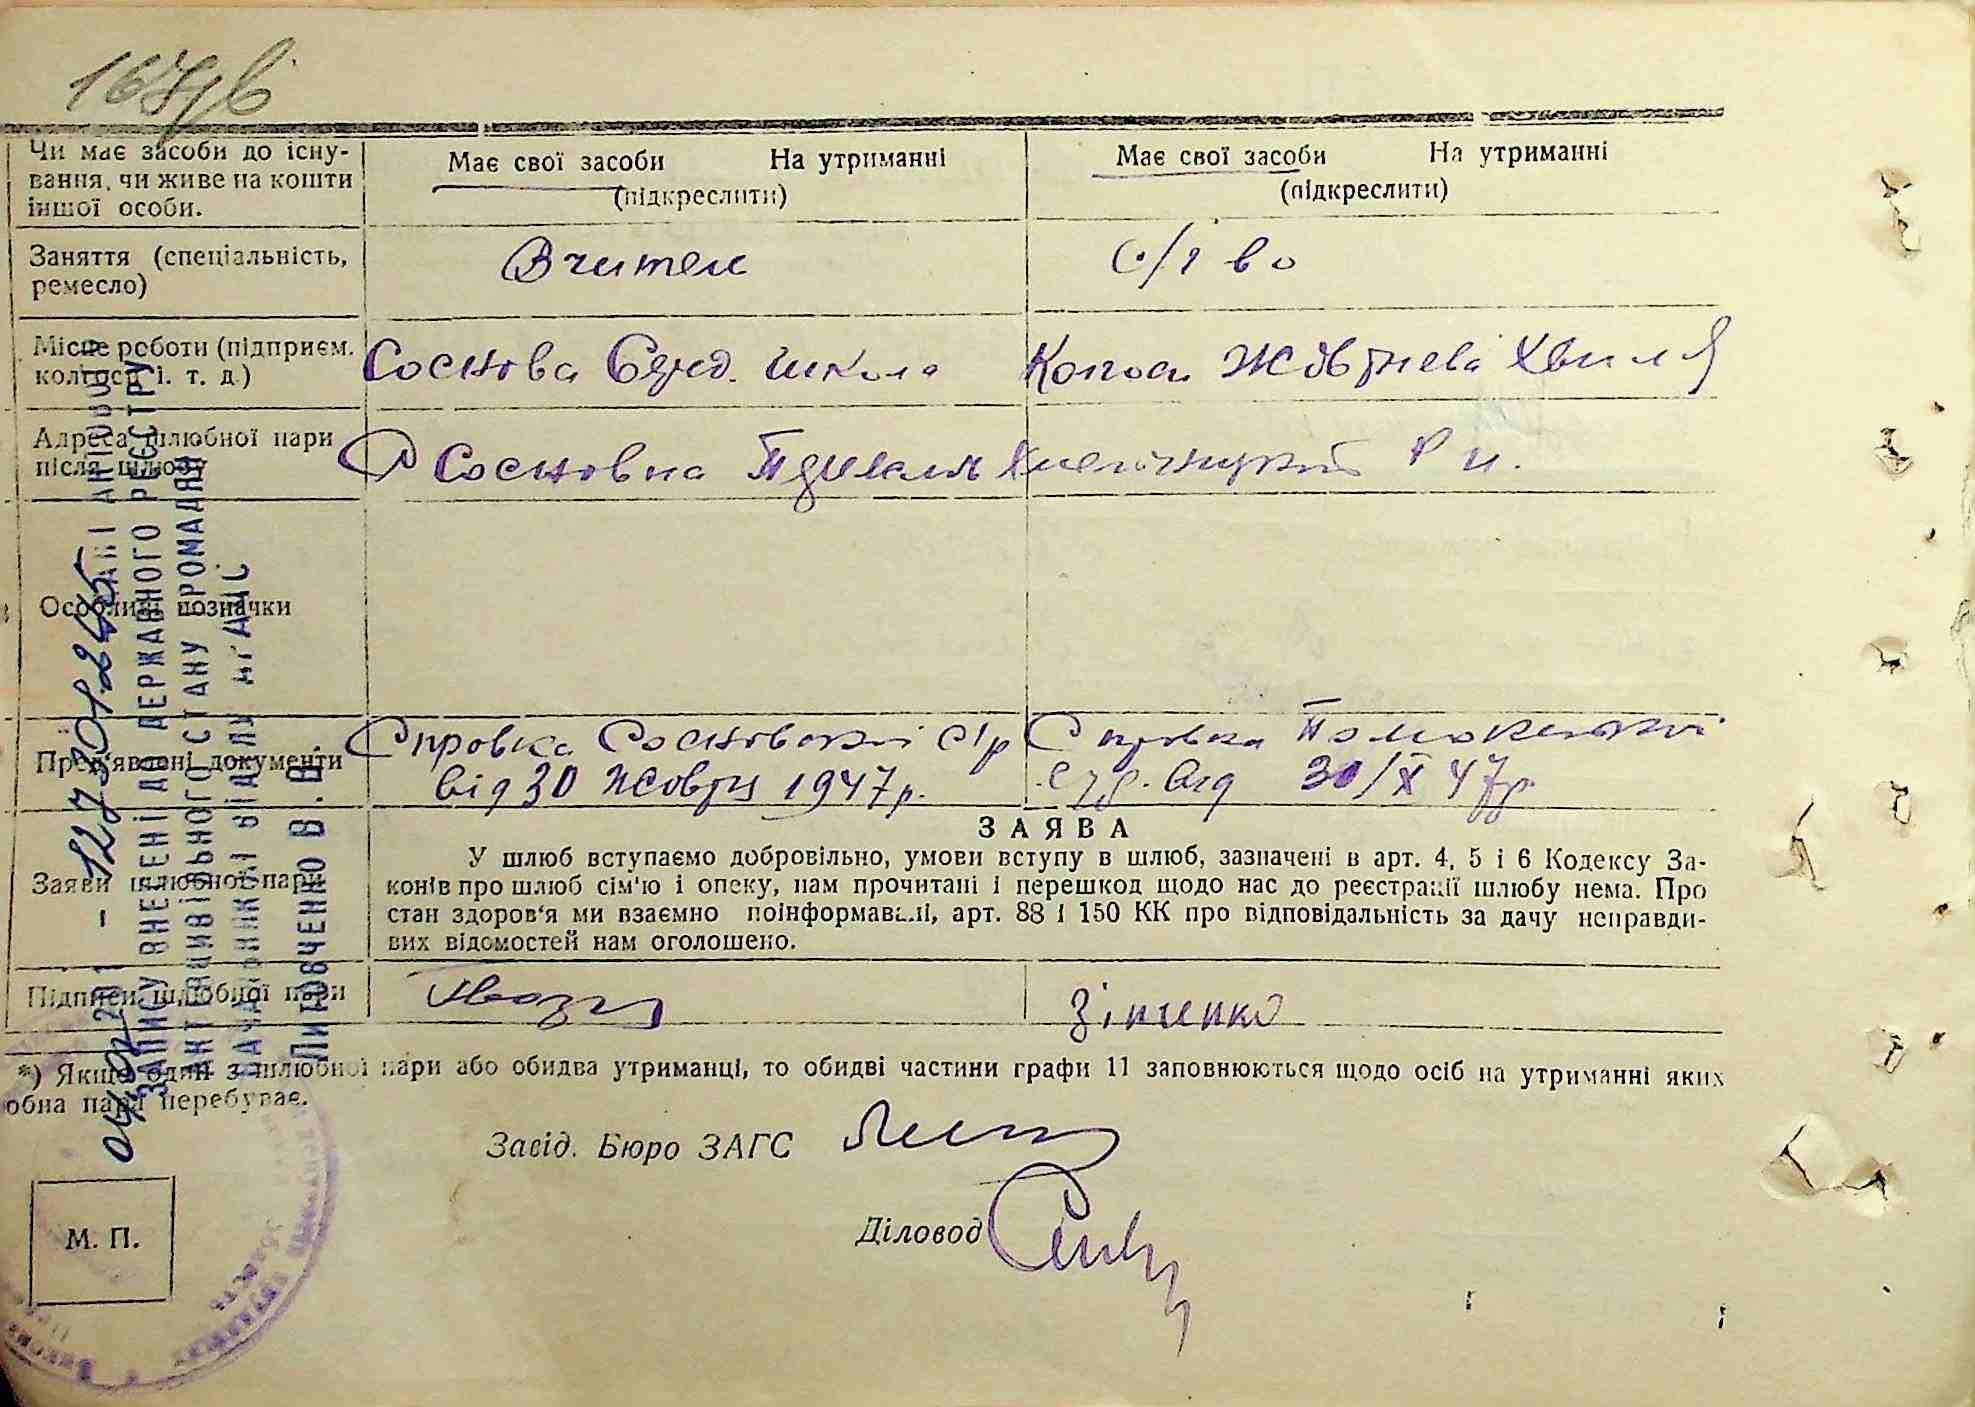 167 дв
Чи має засоби до існу-
вання, чи живе на кошти
іншої особи.
Має свої засоби На утриманні
(підкреслити)
Має свої засоби На утриманні
(підкреслити)
Заняття (спеціальність,
ремесло)
Вчитель
с/г во
Місце роботи (підприєм.
колгосп і. т. д.)
Соснова Серед. школа
Жовтнева Хвиля
Адреса шлюбної пари
після шлюбу
С Соснова Переяслав Хмельницький р н.
Особливі позначки
Пред'явлені документи
Справка Сосновської с/р
від 30 жовтня 1947 р.
Справка
від 30/X 47 р.
Заяви шлюбної пари
ЗАЯВА
У шлюб вступаємо добровільно, умови вступу в шлюб, зазначені в арт. 4, 5 і 6 Кодексу За-
конів про шлюб сім'ю і опеку, нам прочитані і перешкод щодо нас до реєстрації шлюбу нема. Про
стан здоров'я ми взаємно поінформавалі, арт. 88 і 150 КК про відповідальність за дачу неправди-
вих відомостей нам оголошено.
Підписи шлюбної пари
Зінченко
*) Якщо один з шлюбної пари або обидва утриманці, то обидві частини графи 11 заповнюються щодо осіб на утриманні яких
обна пара перебуває.
Завід. Бюро ЗАГС
Діловод
М. П.
ЗАПИСУ ВНЕСЕНІ ДО ДЕРЖАВНОГО РЕЄСТРУ
АКТІВ ЦИВІЛЬНОГО СТАНУ ГРОМАДЯН
НАЧАЛЬНИК ВІДДІЛУ
Литовченко В. В.